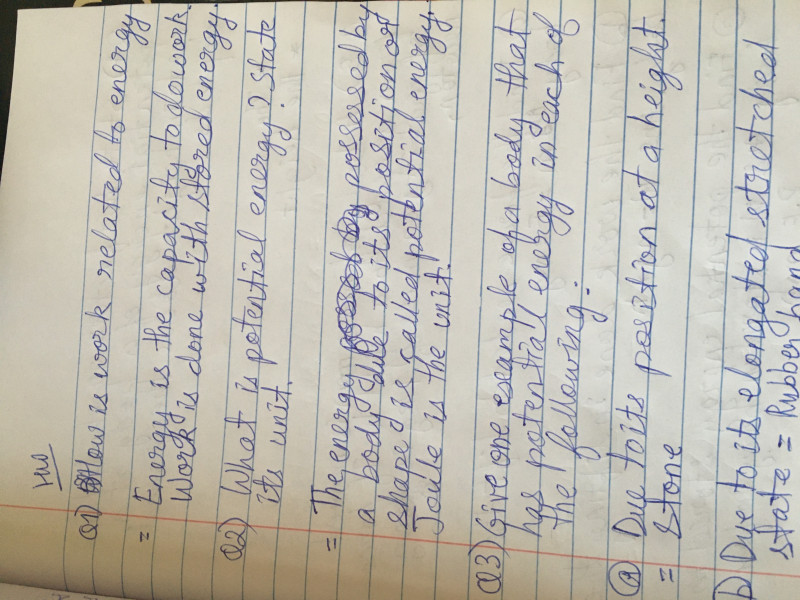 HW
Q1) How is work related to energy
= Energy is the capacity to do work.
Work is done with stored energy.
Q2) What is potential energy? State
its unit.
= The energy possessed by
a body due to its position or
shaped is called potential energy.
Joule is the unit.
Q3) Give one example of a body that
has potential energy in each of
the following:
(a) Due to its position at a height.
= Stone
b) Due to its elongated stretched
state = Rubber band